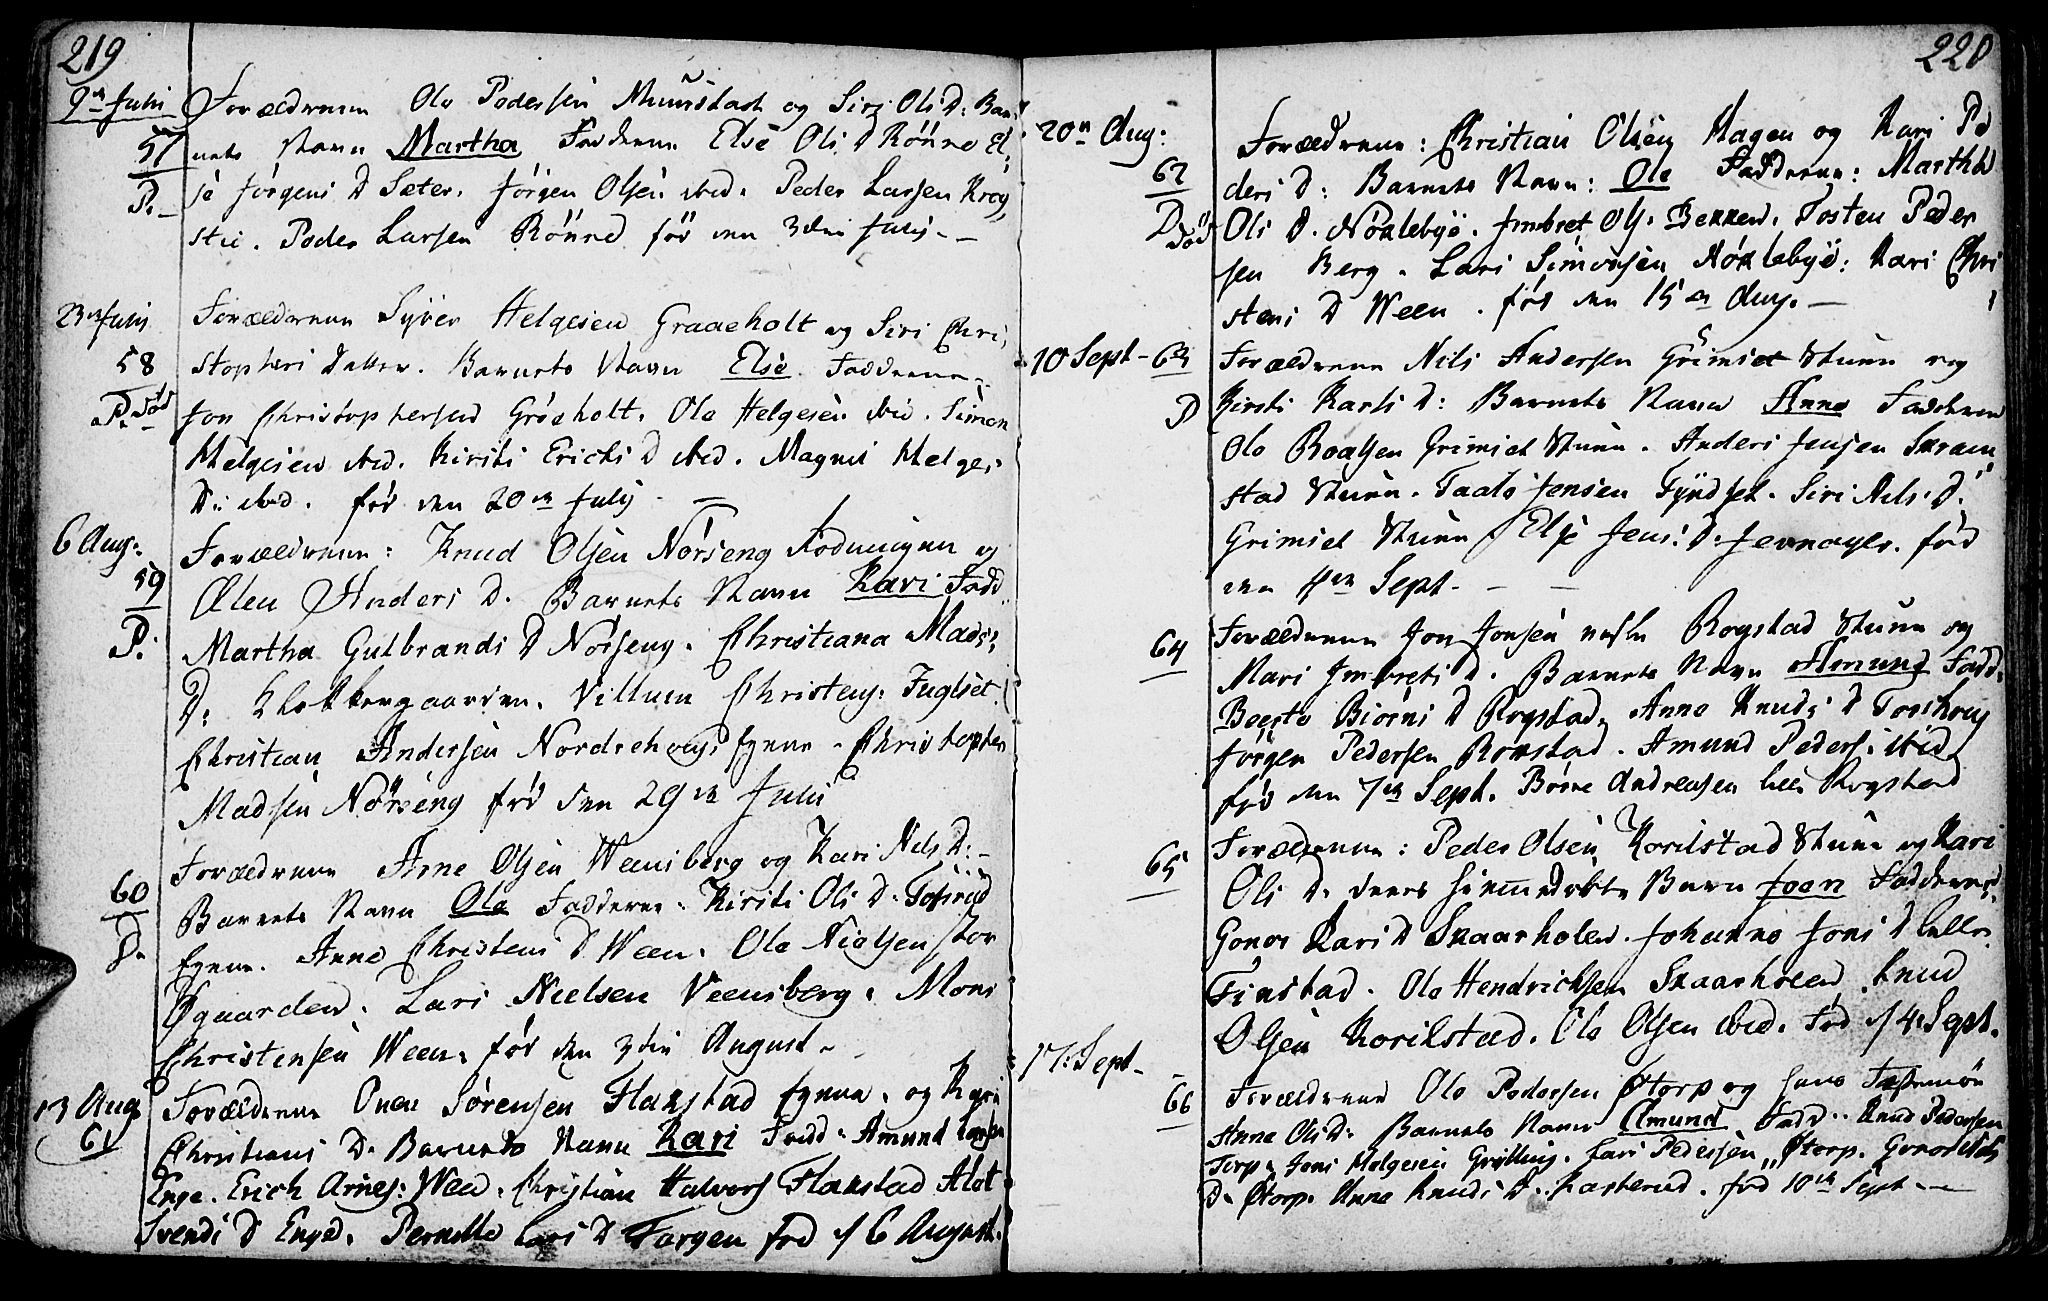 219
9de Julii Forældrene Ole Pedersen Muustad og Siri Ols D: Bar¬
57 nets Navn Martha Faddere Else Ols D Rönne El¬
P. se Jörgens D Sæter. Jörgen Olsen ibid. Peder Larsen Krog¬
stie. Peder Larsen Rönne föd den 3die Julij
23de Julii Forældrene Syver Helgesen Graaeholt og Siri Chri¬
58 stophers Datter. Barnets Navn Else. Fadderne
P. död Jon Christophersen Gröeholt. Ole Helgesen ibid. Simen
Helgesen ibid. Kirsti Erichs D ibid. Magnil Helges
D: ibid. föd den 20de Julij
6 Aug: Forældrene: Knud Olsen Nörseng Rodningen og
59 Ælen Anders D. Barnets Navn Kari Fadd
P. Martha Gulbrands D Nörseng. Christiana Mads
D: Klokkergaarden. Villum Christens: Fuglset
Christian Andersen Nordrehoug Eyene. Christopher
Madsen Nörseng föd den 29de Julii
Forældrene Arne Olsen Weensberg og Kari Nils D:
60 Barnets Navn Ole Fadderne. Kirsti Ols D.
P. Eyene. Anne Christens D Ween. Ole Nielsen Stor
Øgaarden. Lars Nielsen Veensberg. Mons
Christensen Ween. föd den 3die August.
13 Aug Forældrene Sörensen Flakstad Eyene. og Kari
61 Christians D. Barnets Navn Kari Fadd. Amund Larsen
Enge. Erich Arnes: Ween. Christian Halvors Flakstad
Svends D Enge. Pernille Lars D Torgen föd d 6 August.
220
20de Aug: Forældrene: Christian Olsen Hagen og Kari Pe
62 ders D: Barnets Navn: Ole Fadderne: Marthe
D död Ols D. Nöklebye. Imbret Ols. Bekken. Tosten Peder
sen Berg. Lars Simensen Nöklebye: Kari Chri
stens D Ween. föd den 15de Aug.
10 Sept 63 Forældrene Nils Andersen Grimset Stuen og
P Kirsti Karls D: Barnets Navn Anne Fadderne
Ole Roalsen Grimset Stuen. Anders Jensen Skram¬
stad Stuen. Jensen Fyndset. Siri Nils: D:
Grimset Stuen Else Jens: D: föd
den Sept.
Forældrene Jon Jonsen Rogstad Stuen og
64 Mari Imbrets D. Barnets Navn Amund Fadd.
Beerte Biörns D Rogstad. Anne Knuds D Torshoug
Jörgen Pedersen Rokstad. Amund Peders: ibid
föd den 7de Sept. Börre Andreasen Rogstad
Forældrene: Peder Olsen Korilstad Stuen og Kari
65 Ols D. deres Barn Joen Fadderne
Gonor Kari D Skaarholen. Johanne Jons D
Finstad. Ole Hendrichsen Skaarholen. Knud
Olsen Korilstad. Ole Olsen ibid. Föd d 4. Sept.
17: Sept Forældrene Ole Pedersen Øtorp og
66 Anne Ols D. Barnets Navn Amund Fadd. Knud Pedersen
Torp. Jens Helgesen Lars Pedersen Øtorp. Gonor
D. Øtorp. Anne Knuds D. föd 10de Sept